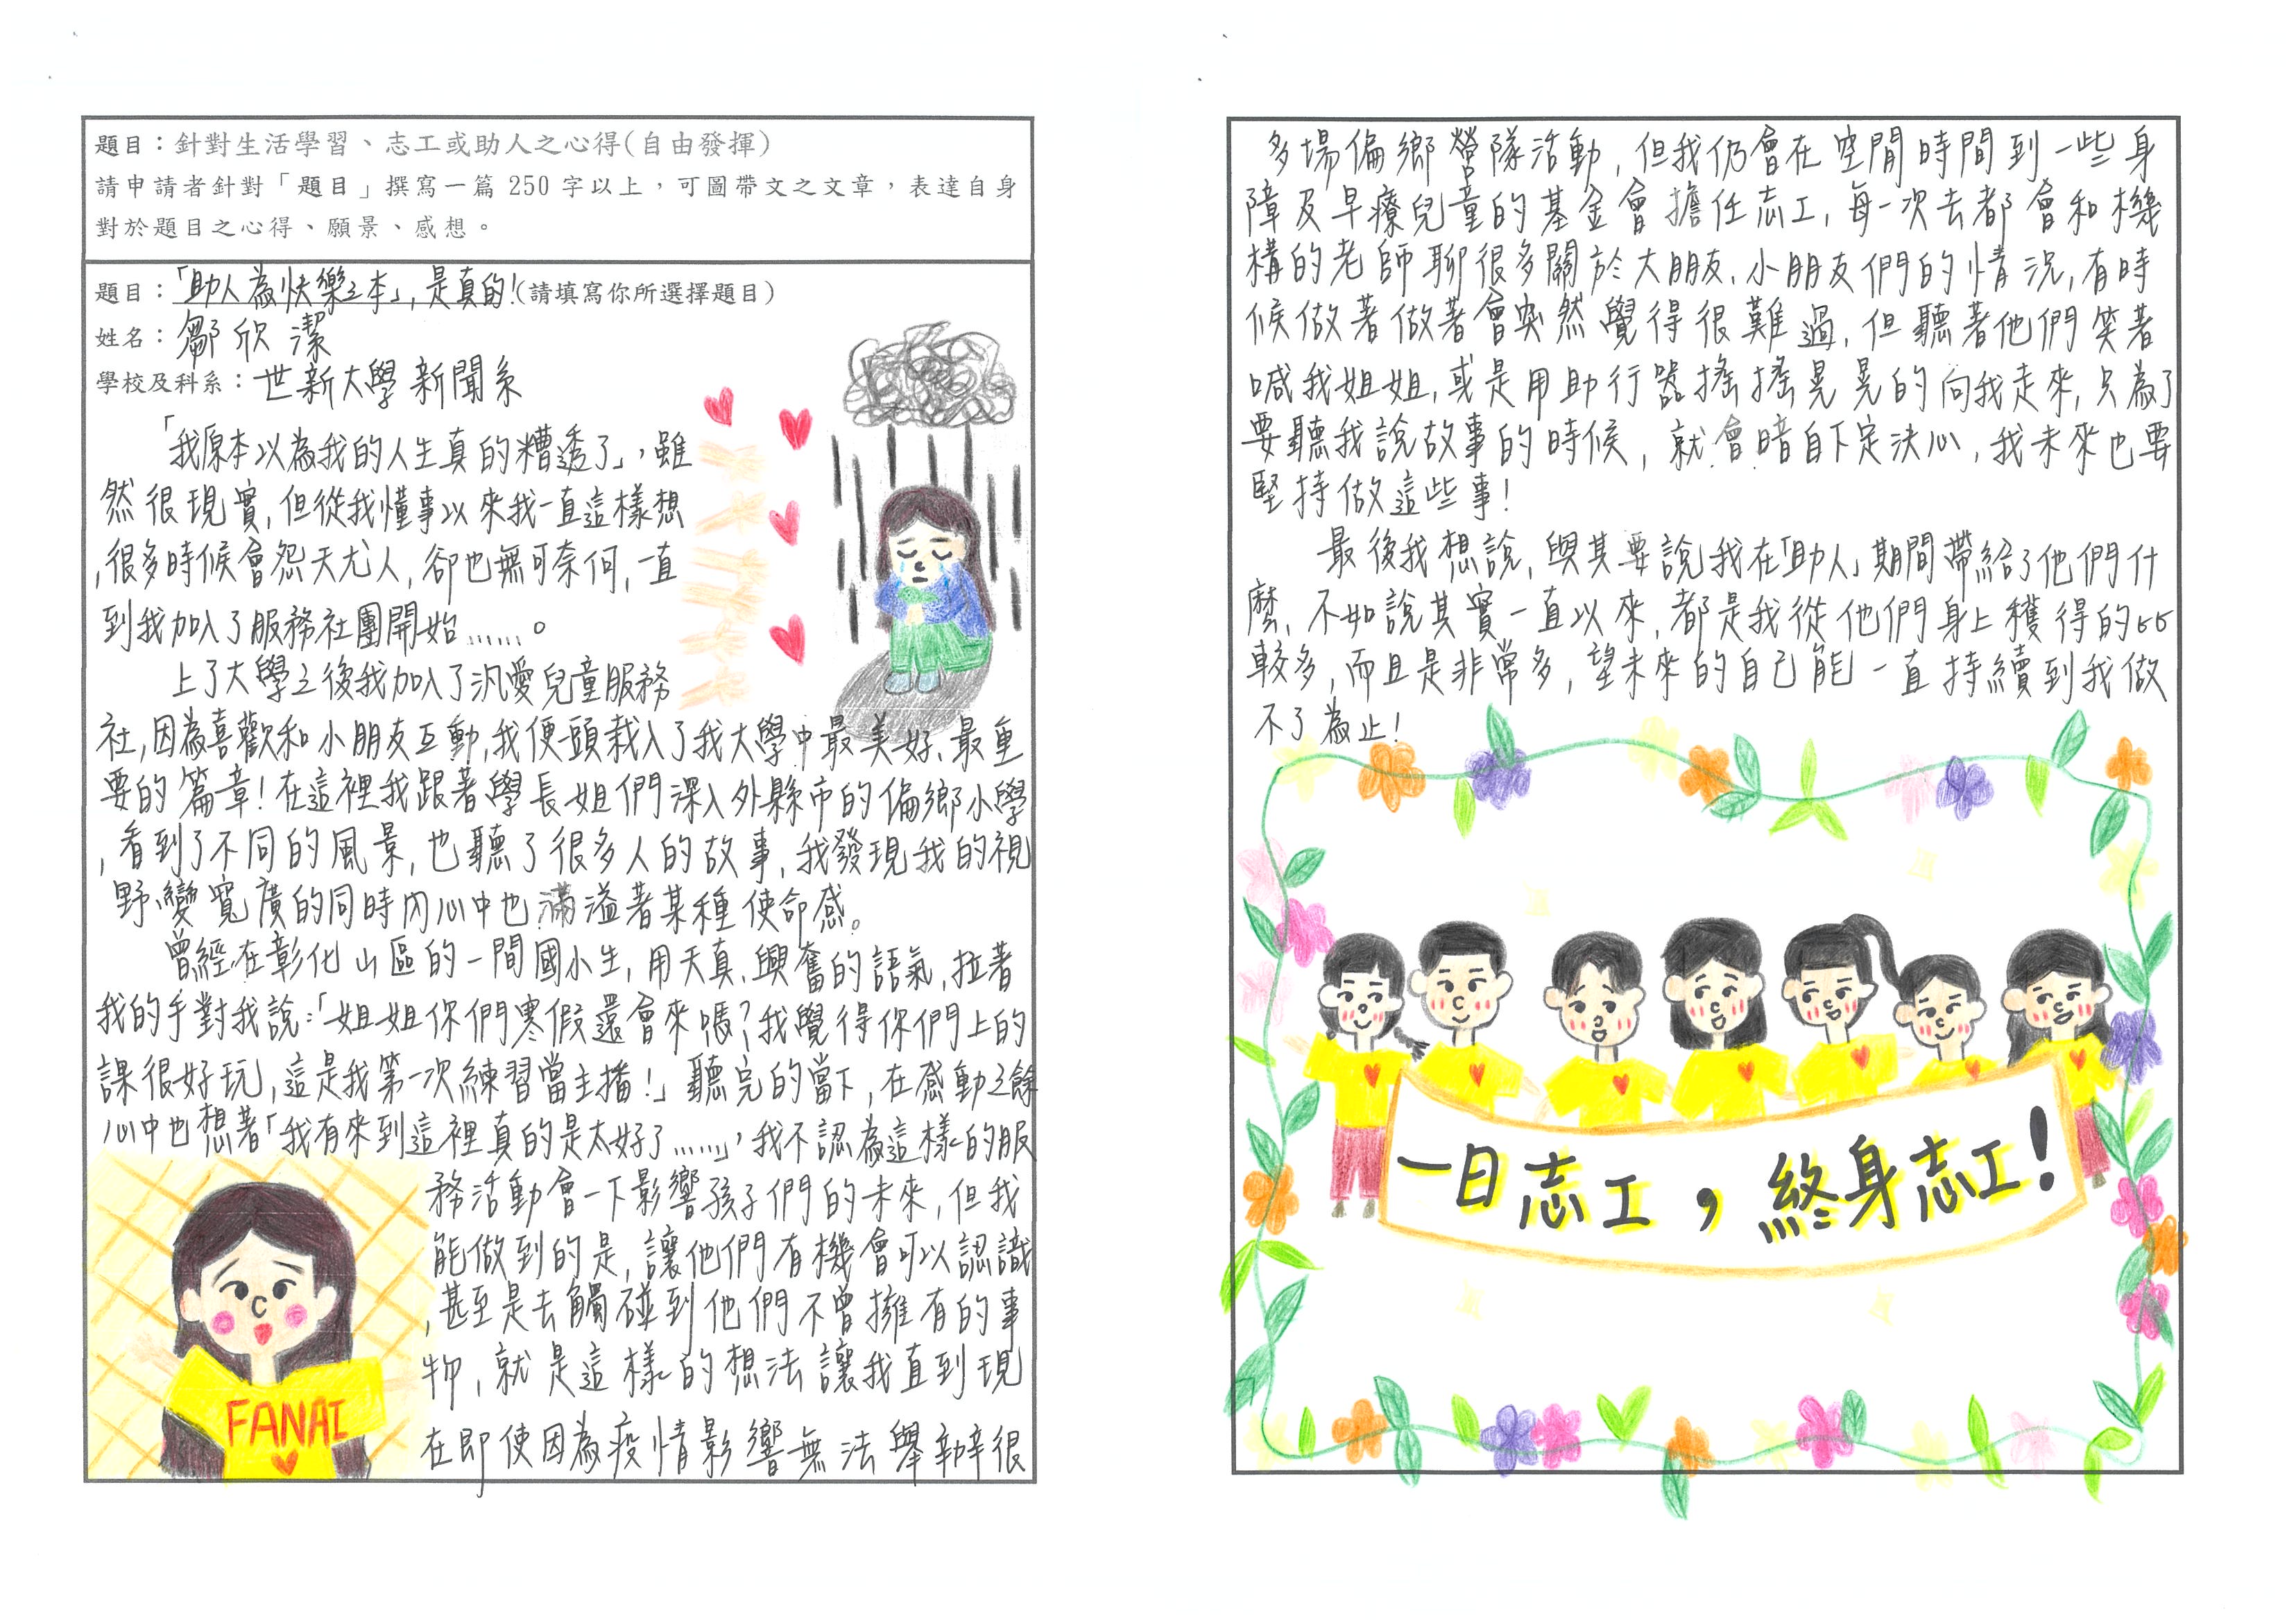 題目：針對生活學習、志工或助人之心得(自由發揮)
請申請者針對「題目」撰寫一篇 250 字以上，可圖帶文之文章，表達自身
對於題目之心得、願景、感想。
題目：「助人為快樂之本」，是真的！(請填寫你所選擇題目)
姓名：鄒欣潔
學校及科系：世新大學新聞系
「我原本以為我的人生真的糟透了」，雖
然很現實，但從我懂事以來我一直這樣想
，很多時候會怨天尤人，卻也無可奈何，一直
到我加入了服務社團開始……。
上了大學之後我加入了汎愛兒童服務
社，因為喜歡和小朋友互動，我便一頭栽入了我大學中最美好、最重
要的篇章！在這裡我跟著學長姐們深入外縣市的偏鄉小學
，看到了不同的風景，也聽了很多人的故事，我發現我的視
野變寬廣的同時內心中也滿溢著某種使命感。
曾經在彰化山區的一間國小生，用天真、興奮的語氣，拉著
我的手對我說：「姐姐你們寒假還會來嗎？我覺得你們上的
課很好玩，這是我第一次練習當主播！」聽完的當下，在感動之餘
心中也想著「我有來到這裡真的是太好了……」，我不認為這樣的服
務活動會一下影響孩子們的未來，但我
能做到的是，讓他們有機會可以認識
，甚至是去觸碰到他們不曾擁有的事
物，就是這樣的想法讓我直到現
在即使因為疫情影響無法舉辦很
FANAI
多場偏鄉營隊活動，但我仍會在空閒時間到一些身
障及早療兒童的基金會擔任志工，每一次去都會和機
構的老師聊很多關於大朋友、小朋友們的情況，有時
候做著做著會突然覺得很難過，但聽著他們笑著
喊我姐姐，或是用助行器搖搖晃晃的向我走來，只為了
要聽我說故事的時候，就會暗自下定決心，我未來也要
堅持做這些事！
最後我想說，與其要說我在「助人」期間帶給了他們什
麼，不如說其實一直以來，都是我從他們身上獲得的比
較多，而且是非常多，望未來的自己能一直持續到我做
不了為止！
一日志工，終身志工！